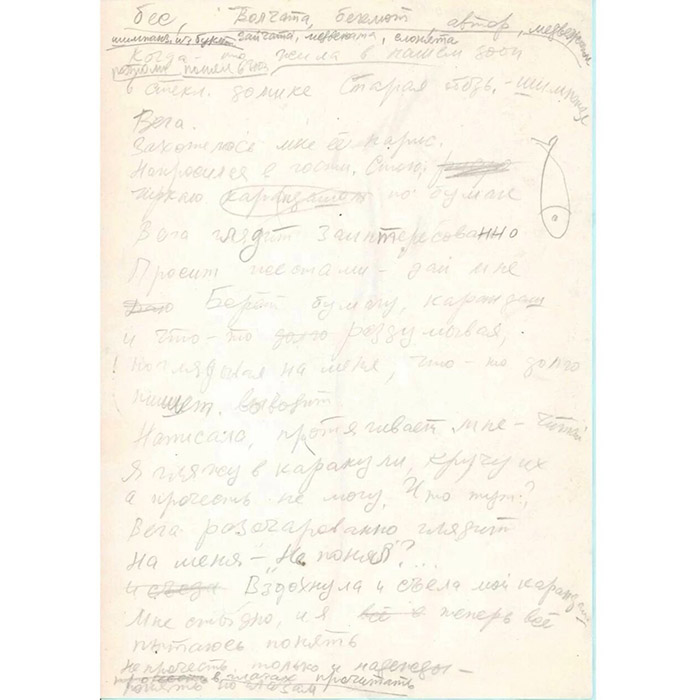 бес, Волчата, бегемот, автор, медвежонок
шимпанзе из букв зайчата, медвежата, слонята
Когда-то жила в нашем зоо
в стекл. домике Старая обезь. - шимпанзе
Вега.
Захотелось мне её нарис.
Напросился в гости. Стою,
чиркаю карандашом по бумаге
Вега глядит заинтересованно
Просит жестами - дай мне
Берёт бумагу, карандаш
и что-то долго раздумывая,
! поглядывая на меня, что-то долго
пишет, выводит
Написала, протягивает мне - Читай
Я гляжу в каракули, кручу их
а прочесть не могу. Что тут?
Вега разочарованно глядит
на меня - "Не понял"?...
и съела Вздохнула и съела мой карандаш
Мне стыдно, и я всё в теперь всё
пытаюсь понять
не прочесть, только и надежды -
прочесть в глазах прочитать
понять по глазам